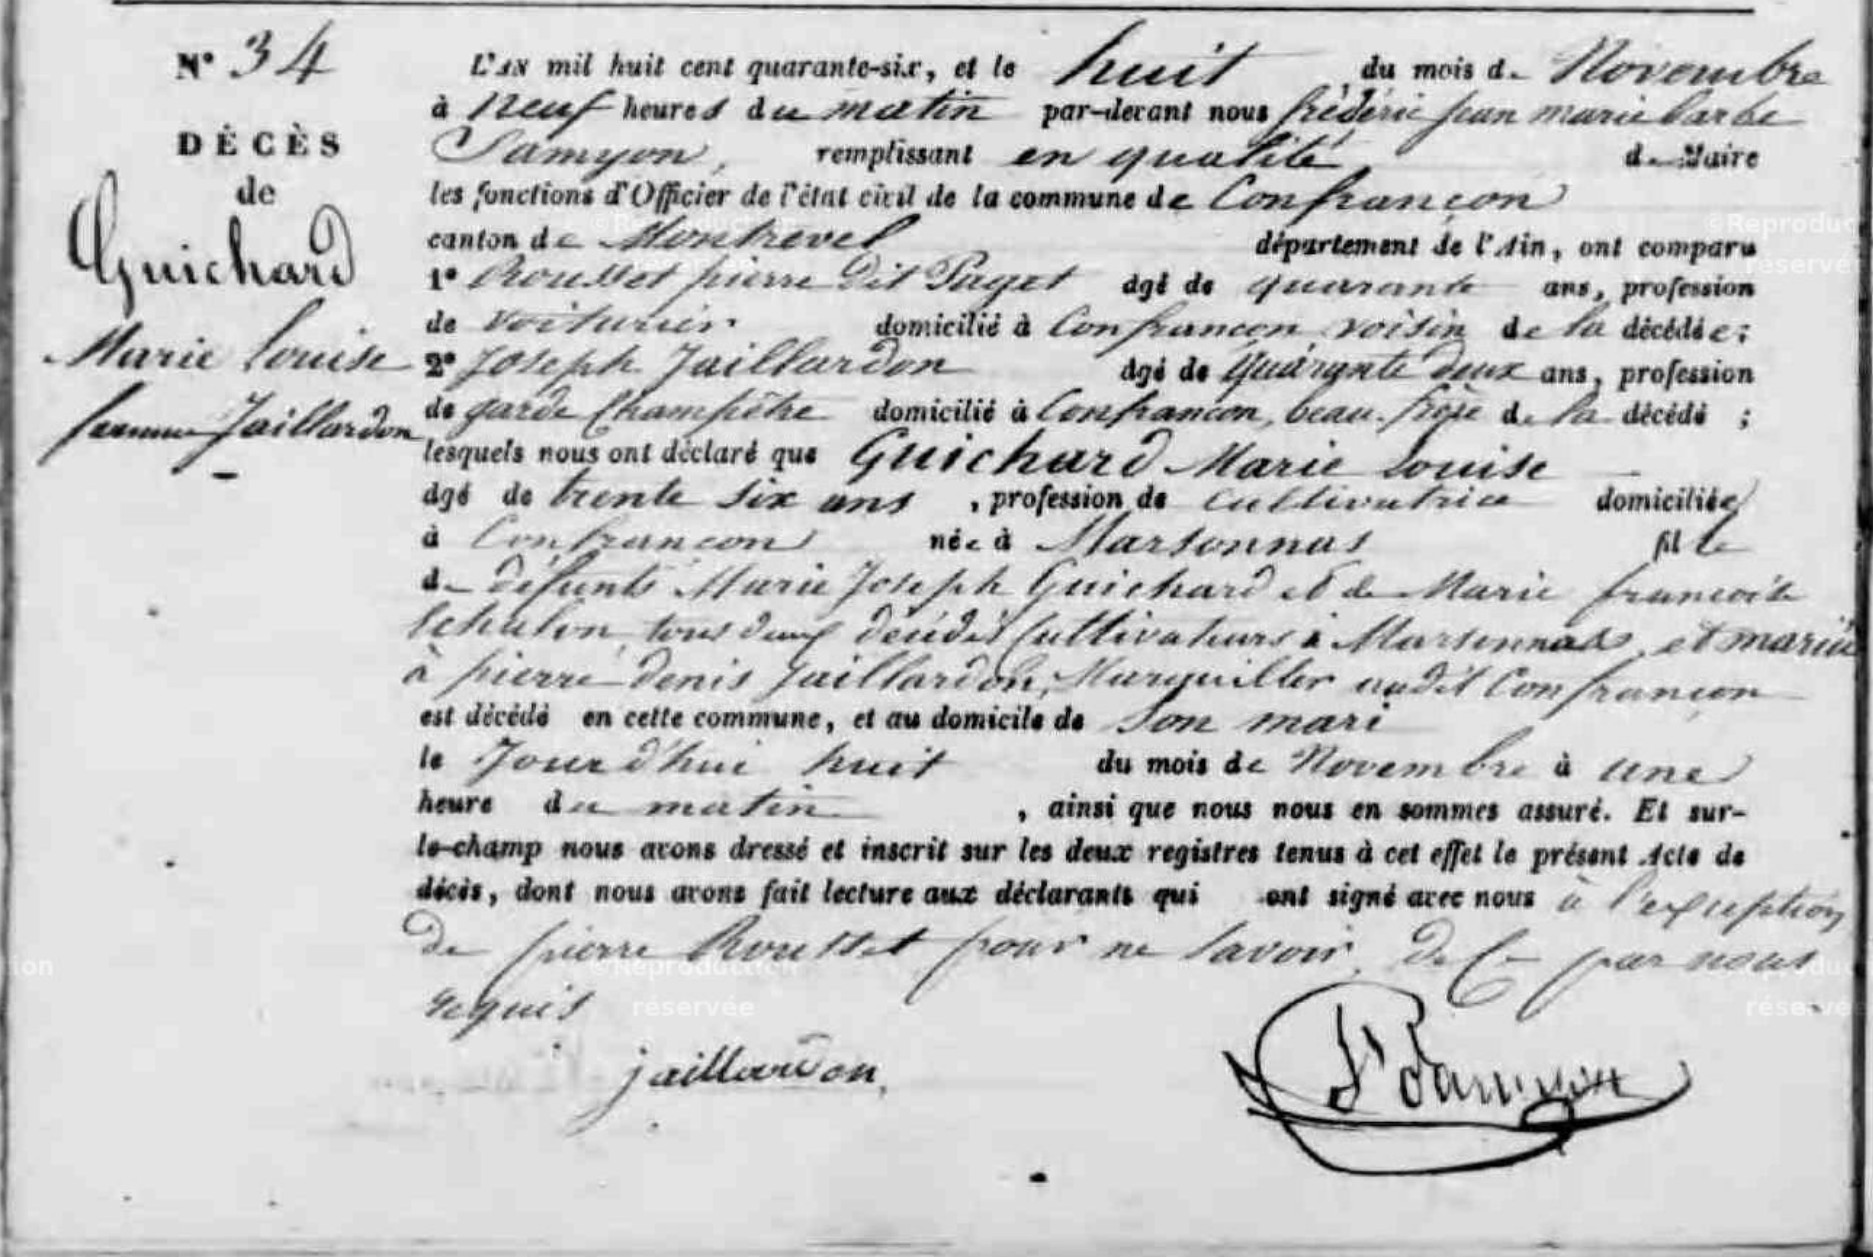 N° 34
DÉCÈS
de
Guichard
Marie Louise
femme Jaillardon
L'AN mil huit cent quarante-six, et le huit du mois de Novembre
à Neuf heures du matin par-devant nous frédéric jean marie barbe
Samyon, remplissant en qualité de Maire
les fonctions d'Officier de l'état civil de la commune de Confrançon
canton de Montrevel département de l'Ain, ont comparu
1° Rousset pierre Dit Puget âgé de quarante ans, profession
de voiturier domicilié à Confrancon voisin de la décédée;
2° Joseph Jaillardon âgé de Quarante deux ans, profession
de garde Champêtre domicilié à Confrancon, beau-frère de la décédé ;
lesquels nous ont déclaré que Guichard Marie Louise
âgé de trente six ans , profession de cultivatrice domiciliée
à Confrancon née à Marsonnas fille
de défunts Marie Joseph Guichard et de Marie francoise
tous deux décédés Cultivateurs à Marsonnas, et mariée
à pierre denis Jaillardon, Marguillier audit Confrançon
est décédé en cette commune, et au domicile de Son mari
le Jourd'hui huit du mois de Novembre à une
heure du matin , ainsi que nous nous en sommes assuré. Et sur-
le-champ nous avons dressé et inscrit sur les deux registres tenus à cet effet le présent Acte de
décès, dont nous avons fait lecture aux déclarants qui ont signé avec nous à l'exception
de pierre Rousset pour ne savoir, de Ce par nous
requis
jaillardon.
Samyon
©Reproduction
réservée
©Reproduction
réservée